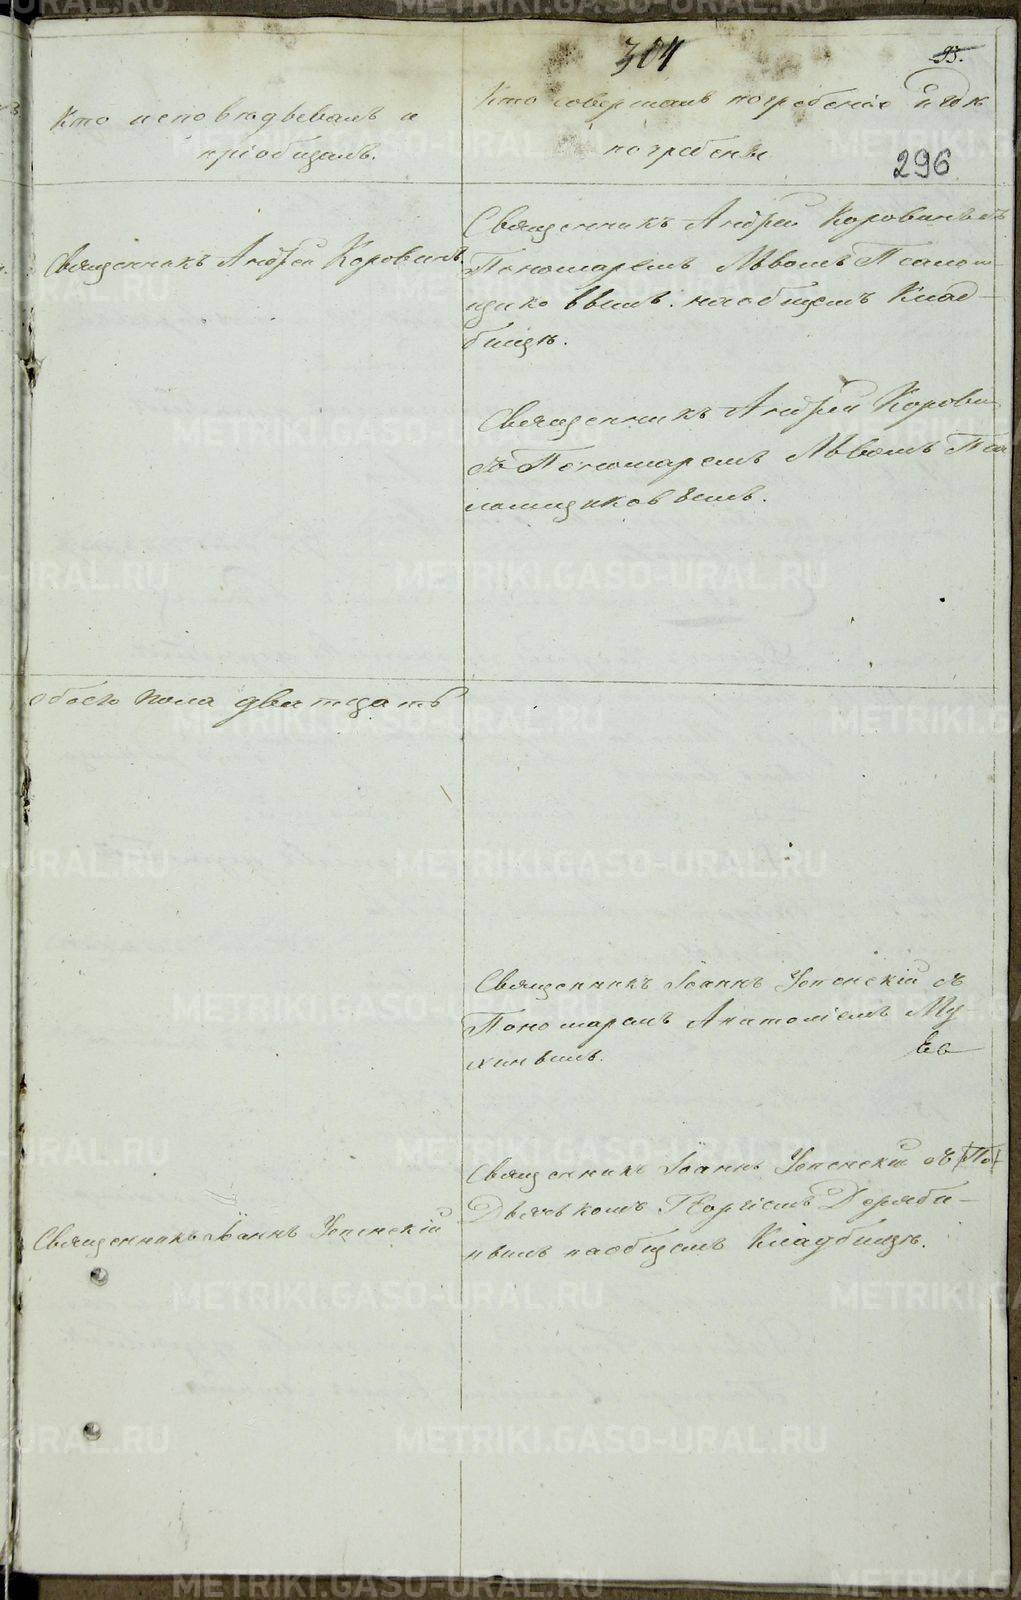 304
95.
296
Кто исповѣдывалъ и
пріобщалъ.
Кто совершалъ погребеніе и гдѣ
погребены
Священникъ Андрей Коровинъ
Священникъ Андрей Коровинъ съ
Пономаремъ Львомъ Псалом
щиковымъ. на общемъ Клад-
бищѣ.
Священникъ Андрей Корови
съ Пономаремъ Львомъ Пса
ломщиковымъ.
обоего пола дватцать
Священникъ Іоаннъ Успенскій съ
Пономаремъ Анатоліемъ Му
хинымъ.
Священникъ Іоаннъ Успенскій съ По
Дьячькомъ Георгіемъ Деряби-
нымъ на общемъ Кладбищѣ.
Священникъ Іоаннъ Успенскій
METRIKI.GASO-URAL.RU